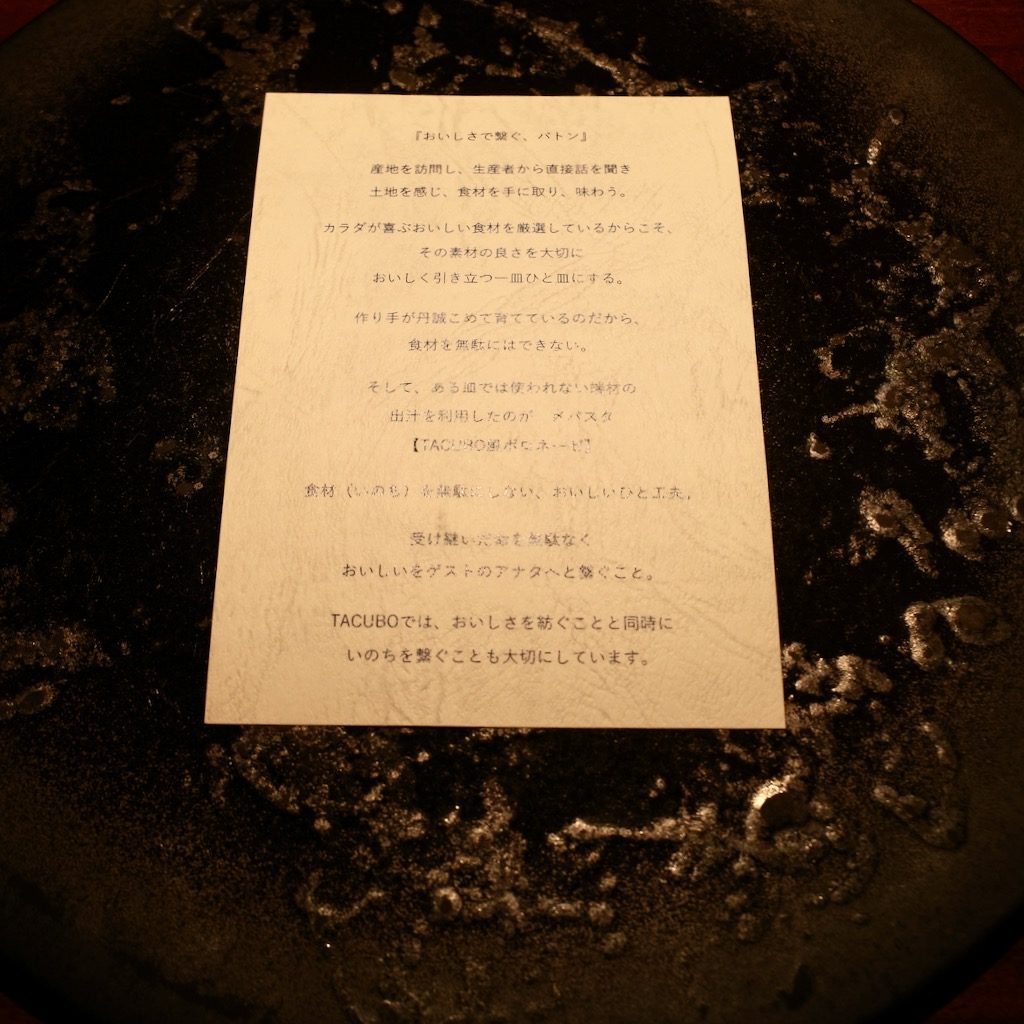 『おいしさで繋ぐ、バトン』
産地を訪問し、生産者から直接話を聞き
土地を感じ、食材を手に取り、味わう。
カラダが喜ぶおいしい食材を厳選しているからこそ、
その素材の良さを大切に
おいしく引き立つ一皿ひと皿にする。
作り手が丹誠こめて育てているのだから、
食材を無駄にはできない。
そして、ある皿では使われない食材の
出汁を利用したのが 〆パスタ
【TACUBO風ボロネーゼ】
食材（いのち）を無駄にしない、おいしいひと工夫。
受け継いだ命を無駄なく
おいしいをゲストのアナタへと繋ぐこと。
TACUBOでは、おいしさを紡ぐことと同時に
いのちを繋ぐことも大切にしています。